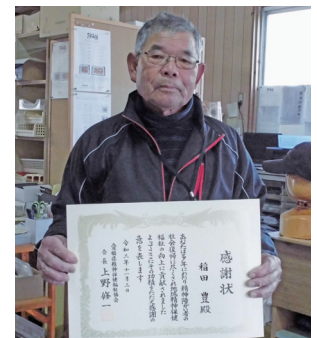 感謝状
稲田 豊殿
あなたは多年にわたり精神障害者の
社会復帰に尽くされ地域精神保健
福祉の向上に貢献されました
よってここにその功績をたたえ感謝の
意を表します
令和二年十一月二日
会長 上野修一